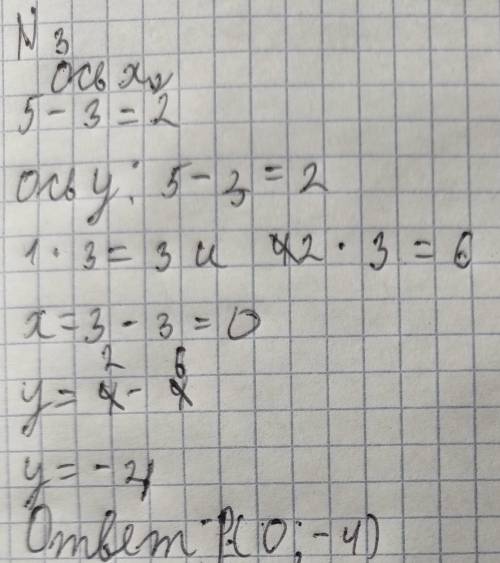 N 3
ось x,
5 - 3 = 2
ось y: 5 - 3 = 2
1 · 3 = 3 и 2 · 3 = 6
x = 3 - 3 = 0
y = 2 - 6
y = - 4
Ответ P(0; -4)